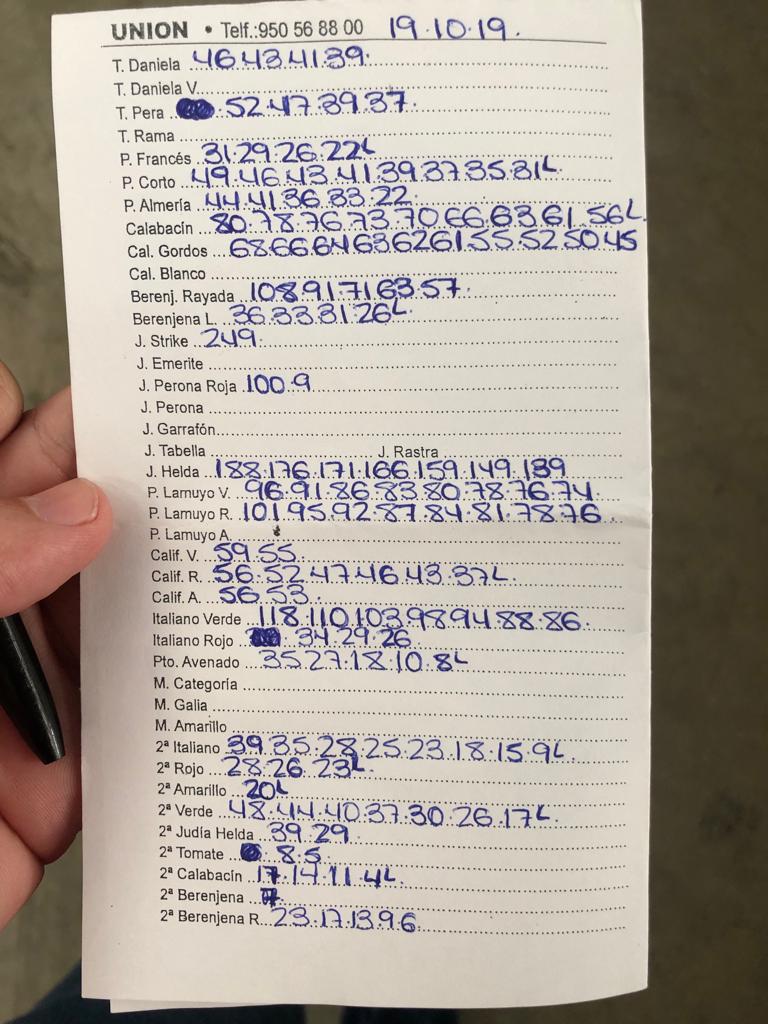 UNION • Telf.:950 56 88 00 19.10.19.
T. Daniela 46.43.41.39.
T. Daniela V.
T. Pera 52.47.39.37.
T. Rama
P. Francés 31.29.26.22L
P. Corto 49.46.43.41.39.37.35.31L.
P. Almería 44.41.36.33.22
Calabacín 80.78.76.73.70.66.63.61.56L.
Cal. Gordos 68.66.64.63.62.61.55.52.50.45
Cal. Blanco
Berenj. Rayada 108.91.71.63.57.
Berenjena L 36.33.31.26L.
J. Strike 249.
J. Emerite
J. Perona Roja 100.9
J. Perona
J. Garrafón
J. Tabella J. Rastra
J. Helda 188.176.171.166.159.149.139
P. Lamuyo V. 96.91.86.83.80.78.76.74
P. Lamuyo R. 101.95.92.87.84.81.78.76.
P. Lamuyo A.
Calif. V. 59.55.
Calif. R. 56.52.47.46.43.37L.
Calif. A. 56.53.
Italiano Verde 118.110.103.98.94.88.86.
Italiano Rojo 34.29.26
Pto. Avenado 35.27.18.10.8L
M. Categoría
M. Galia
M. Amarillo
2ª Italiano 39.35.28.25.23.18.15.9L.
2ª Rojo 28.26.23L.
2ª Amarillo 20L
2ª Verde 48.44.40.37.30.26.17L.
2ª Judía Helda 39.29.
2ª Tomate 8.5
2ª Calabacín 17.14.11.4L.
2ª Berenjena
2ª Berenjena R. 23.17.13.9.6.